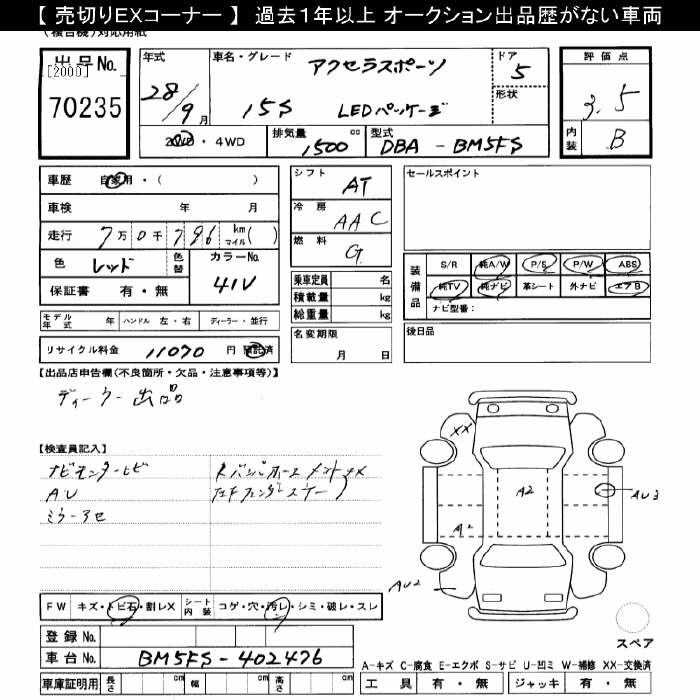 【 売切りEXコーナー 】 過去1年以上 オークション出品歴がない車両
(複合機)対応用紙
出品No.
[2000]
70235
年式
28/9月
車名・グレード
アクセラスポーツ
15S LEDパッケージ
ドア
5
形状
評価点
3.5
内装
B
2WD・4WD
排気量
1500
cc
型式
DBA - BM5FS
車歴 自家用・( )
車検 年 月
走行 7万 0千 796 km マイル( )
色 レッド 色替 カラーNo.
41V
保証書 有・無
シフト AT
冷房 AAC
燃料 G
乗車定員 名
積載量 kg
総重量 kg
セールスポイント
装備品
S/R 純A/W P/S P/W ABS
純TV 純ナビ 革シート 外ナビ エアB
ナビ型番:
モデル年式 年 ハンドル 左・右 ディーラー・並行
名変期限
月 日
後日品
リサイクル料金 11070 円 預託済
【出品店申告欄(不良箇所・欠品・注意事項等)】
ディーラー出品
【検査員記入】
ナビモニターヒビ
AU
ミラーアセ
XX
A2
AU3
A2
AU2
FW キズ・トビ石・割レX シート内装 コゲ・穴・汚レ・シミ・破レ・スレ
登録No.
車台No. BM5FS-402476
スペア
A-キズ C-腐食 E-エクボ S-サビ U-凹ミ W-補修 XX-交換済
車庫証明用 長さ cm 幅 cm 高さ cm
工具 有・無 ジャッキ 有・無